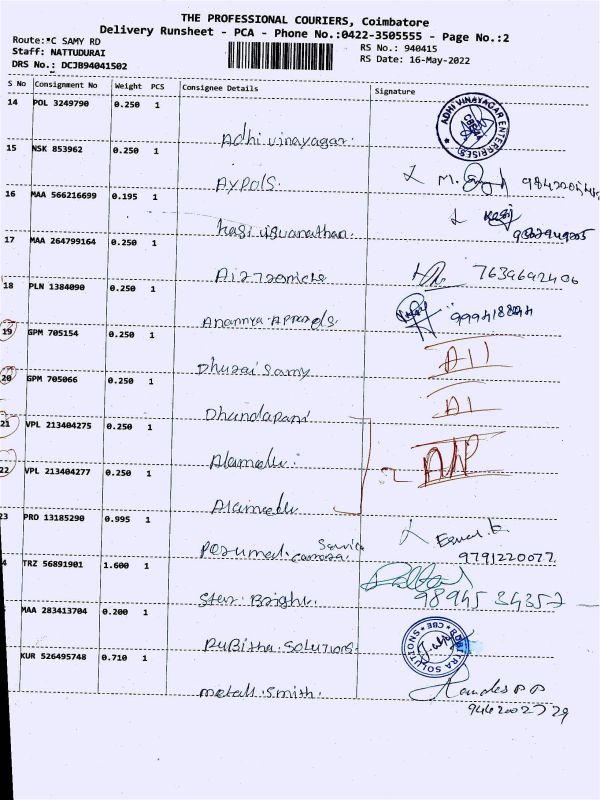 THE PROFESSIONAL COURIERS, Coimbatore
Delivery Runsheet - PCA - Phone No.:0422-3505555 - Page No.:2
Route:*C SAMY RD
Staff: NATTUDURAI
RS No.: 940415
DRS No.: DCJB94041502
RS Date: 16-May-2022
S No Consignment No Weight PCS Consignee Details Signature
14 POL 3249790 0.250 1
Adhi vinayagar
ADHI VINAYAGAR ENTERPRISES
CBE
15 NSK 853962 0.250 1
16 MAA 566216699 0.195 1
Kasi viswanathan.
17 MAA 264799164 0.250 1
7639692406
18 PLN 1384090 0.250 1
19 GPM 705154 0.250 1
Dhuraisamy
20 GPM 705066 0.250 1
Dhandapani
21 VPL 213404275 0.250 1
Alamelu.
22 VPL 213404277 0.250 1
Alamelu
23 PRO 13185290 0.995 1
9791220077
4 TRZ 56891901 1.600 1
Star. Bright.
98945 34357
MAA 283413704 0.200 1
RUBITHA SOLUTIONS.
CBE
KUR 526495748 0.710 1
metall. Smith.